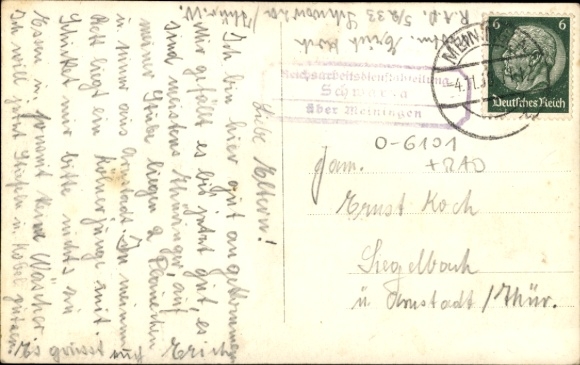 R.A.D. 5/233 Schwarza
/Thür. W.
Abm. Erich Koch
Liebe Eltern!
Ich bin hier gut angekommen
Mir gefällt es bis jetzt gut, es
sind meistens Thüringer, auf
meiner Stube liegen 2
u. einer aus Arnstadt. In meinem
Bett liegt ein mit
Schicket mir bitte nichts zu
Essen u. sonst keine Wäsche
Ich will jetzt Stiefeln u. putzen
Es grüsst euch Erich
Reichsarbeitsdienstabteilung
Schwarza
über Meiningen
MEININGEN
6 6
Deutsches Reich
O-6101
+RAD
Fam.
Ernst Koch
Siegelbach
ü Arnstadt/Thür.